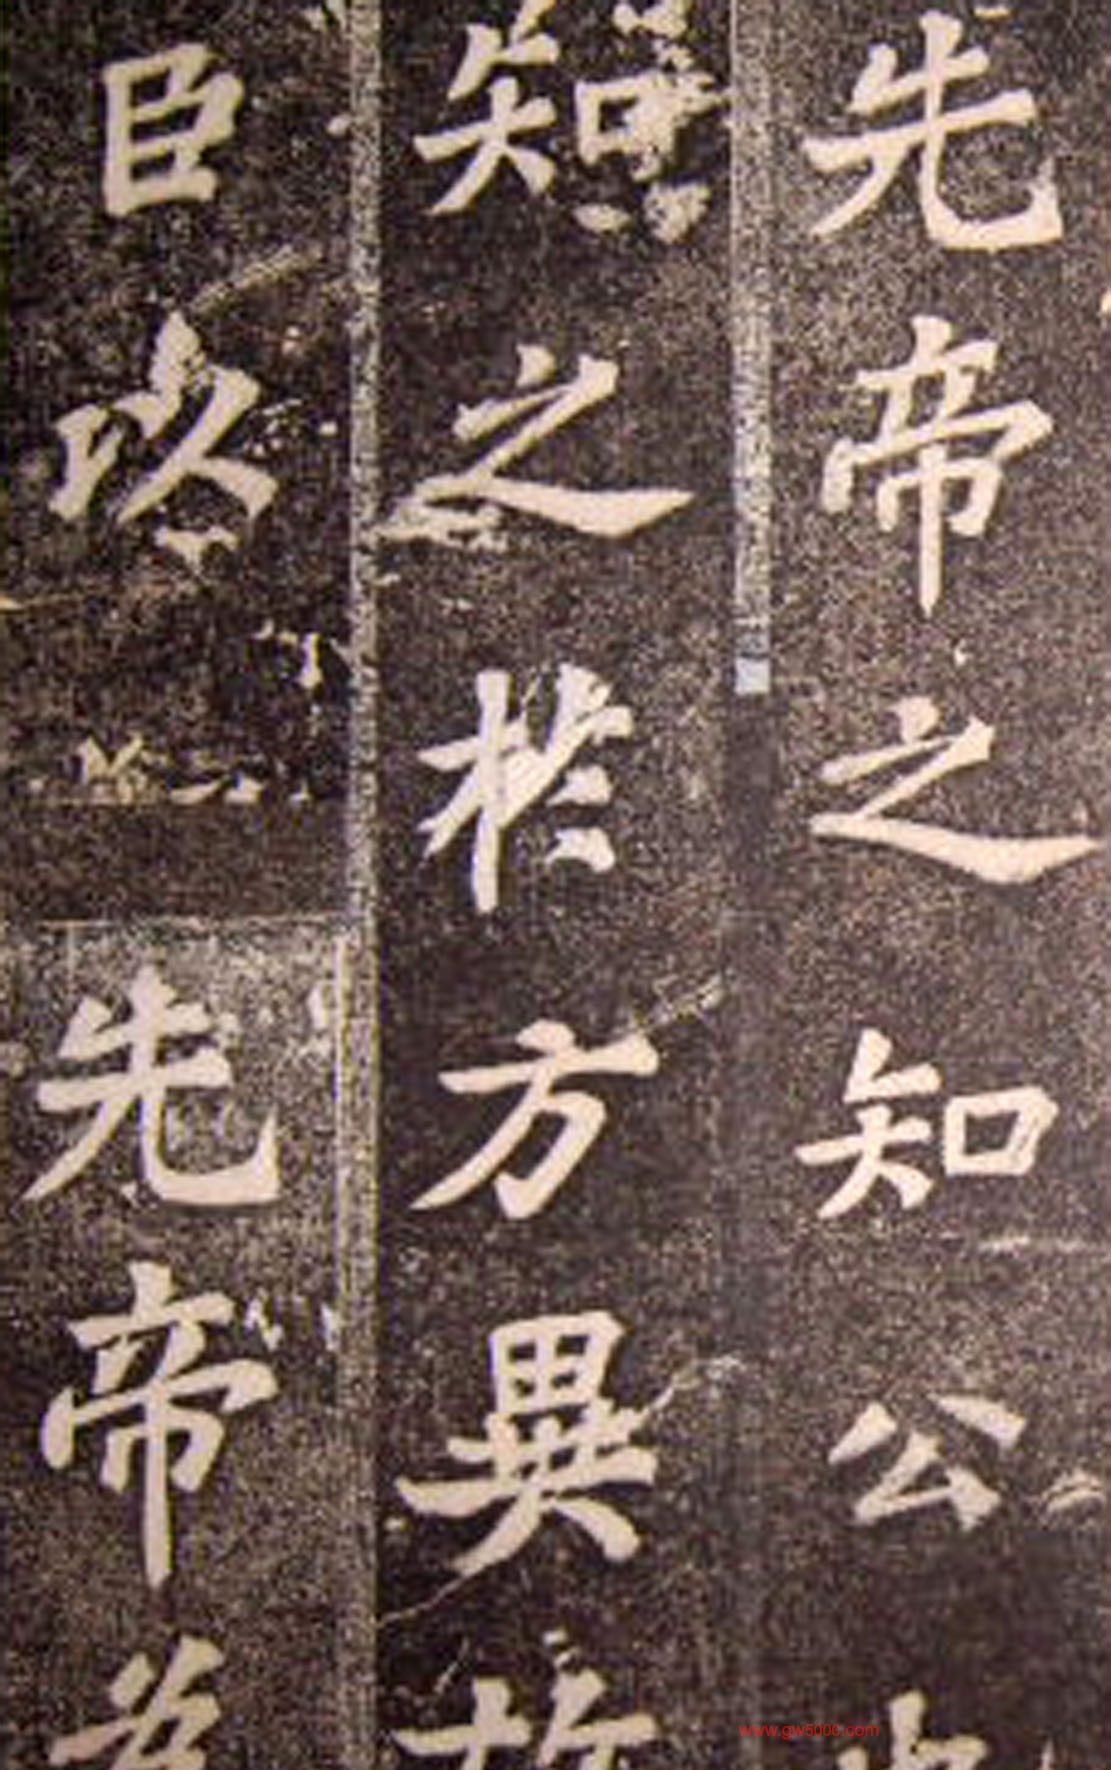 先帝之知公
知之於方異
臣以
先帝
www.gw6000.com